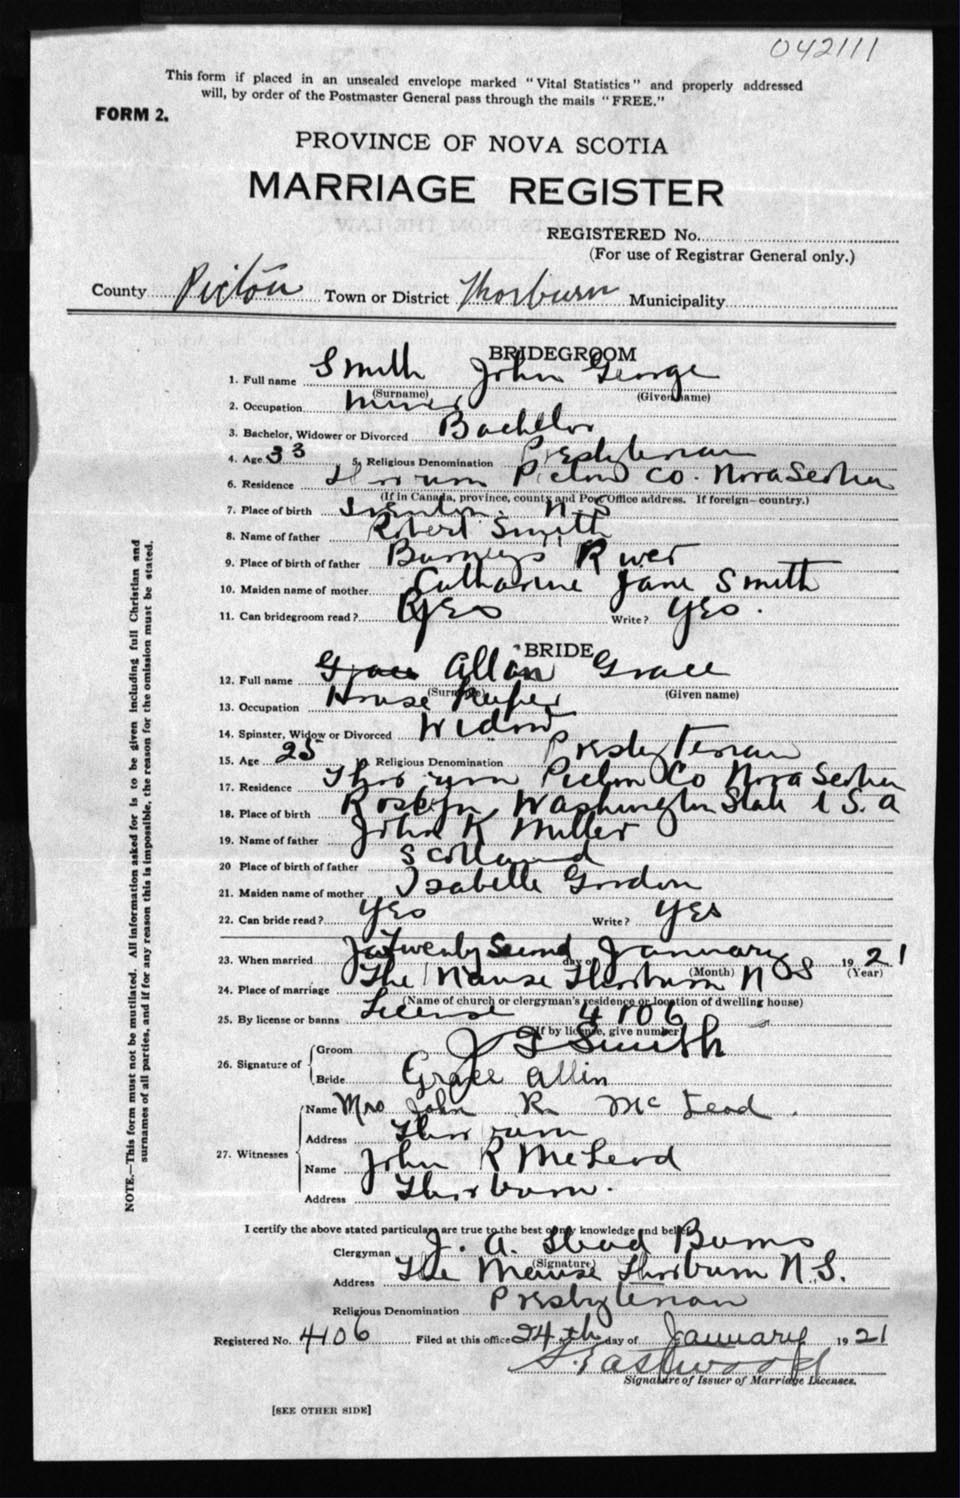 042111
This form if placed in an unsealed envelope marked "Vital Statistics" and properly addressed
will, by order of the Postmaster General pass through the mails "FREE."
FORM 2.
PROVINCE OF NOVA SCOTIA
MARRIAGE REGISTER
REGISTERED No.
(For use of Registrar General only.)
County Pictou Town or District Thorburn Municipality
BRIDEGROOM
1. Full name Smith John George
(Surname) (Given name)
2. Occupation Miner
3. Bachelor, Widower or Divorced Bachelor
4. Age 33 5. Religious Denomination Presbyterian
6. Residence Thorburn Pictou Co. Nova Scotia
(If in Canada, province, county and Post Office address. If foreign—country.)
7. Place of birth Trenton. N.S
8. Name of father Robert Smith
9. Place of birth of father Barneys River
10. Maiden name of mother Catharine Jane Smith
11. Can bridegroom read? Yes Write? yes.
BRIDE
12. Full name Grace Allan Grace
(Surname) (Given name)
13. Occupation House Keeper
14. Spinster, Widow or Divorced Widow
15. Age 25 Religious Denomination Presbyterian
17. Residence Thorburn Pictou Co Nova Scotia
18. Place of birth Roslyn Washington State U S. A
19. Name of father John K Miller
20 Place of birth of father Scotland
21. Maiden name of mother Isabelle Gordon
22. Can bride read? Yes Write? Yes
23. When married Twenty Second day of January 1921
(Month) (Year)
24. Place of marriage The Manse Thorburn N S
(Name of church or clergyman's residence or location of dwelling house)
25. By license or banns License 4106
(If by license, give number)
26. Signature of
Groom J G Smith
Bride Grace Allin
27. Witnesses
Name Mrs John R. McLeod.
Address Thorburn
Name John R McLeod
Address Thorburn.
I certify the above stated particulars are true to the best of my knowledge and belief.
Clergyman J. A. Burns
(Signature)
Address The Manse Thorburn N.S.
Religious Denomination Presbyterian
Registered No. 4106 Filed at this office 24th day of January 1921
S. Eastwood
Signature of Issuer of Marriage Licenses.
[SEE OTHER SIDE]
NOTE.—This form must not be mutilated. All information asked for is to be given including full Christian and
surnames of all parties, and if for any reason this is impossible, the reason for the omission must be stated.